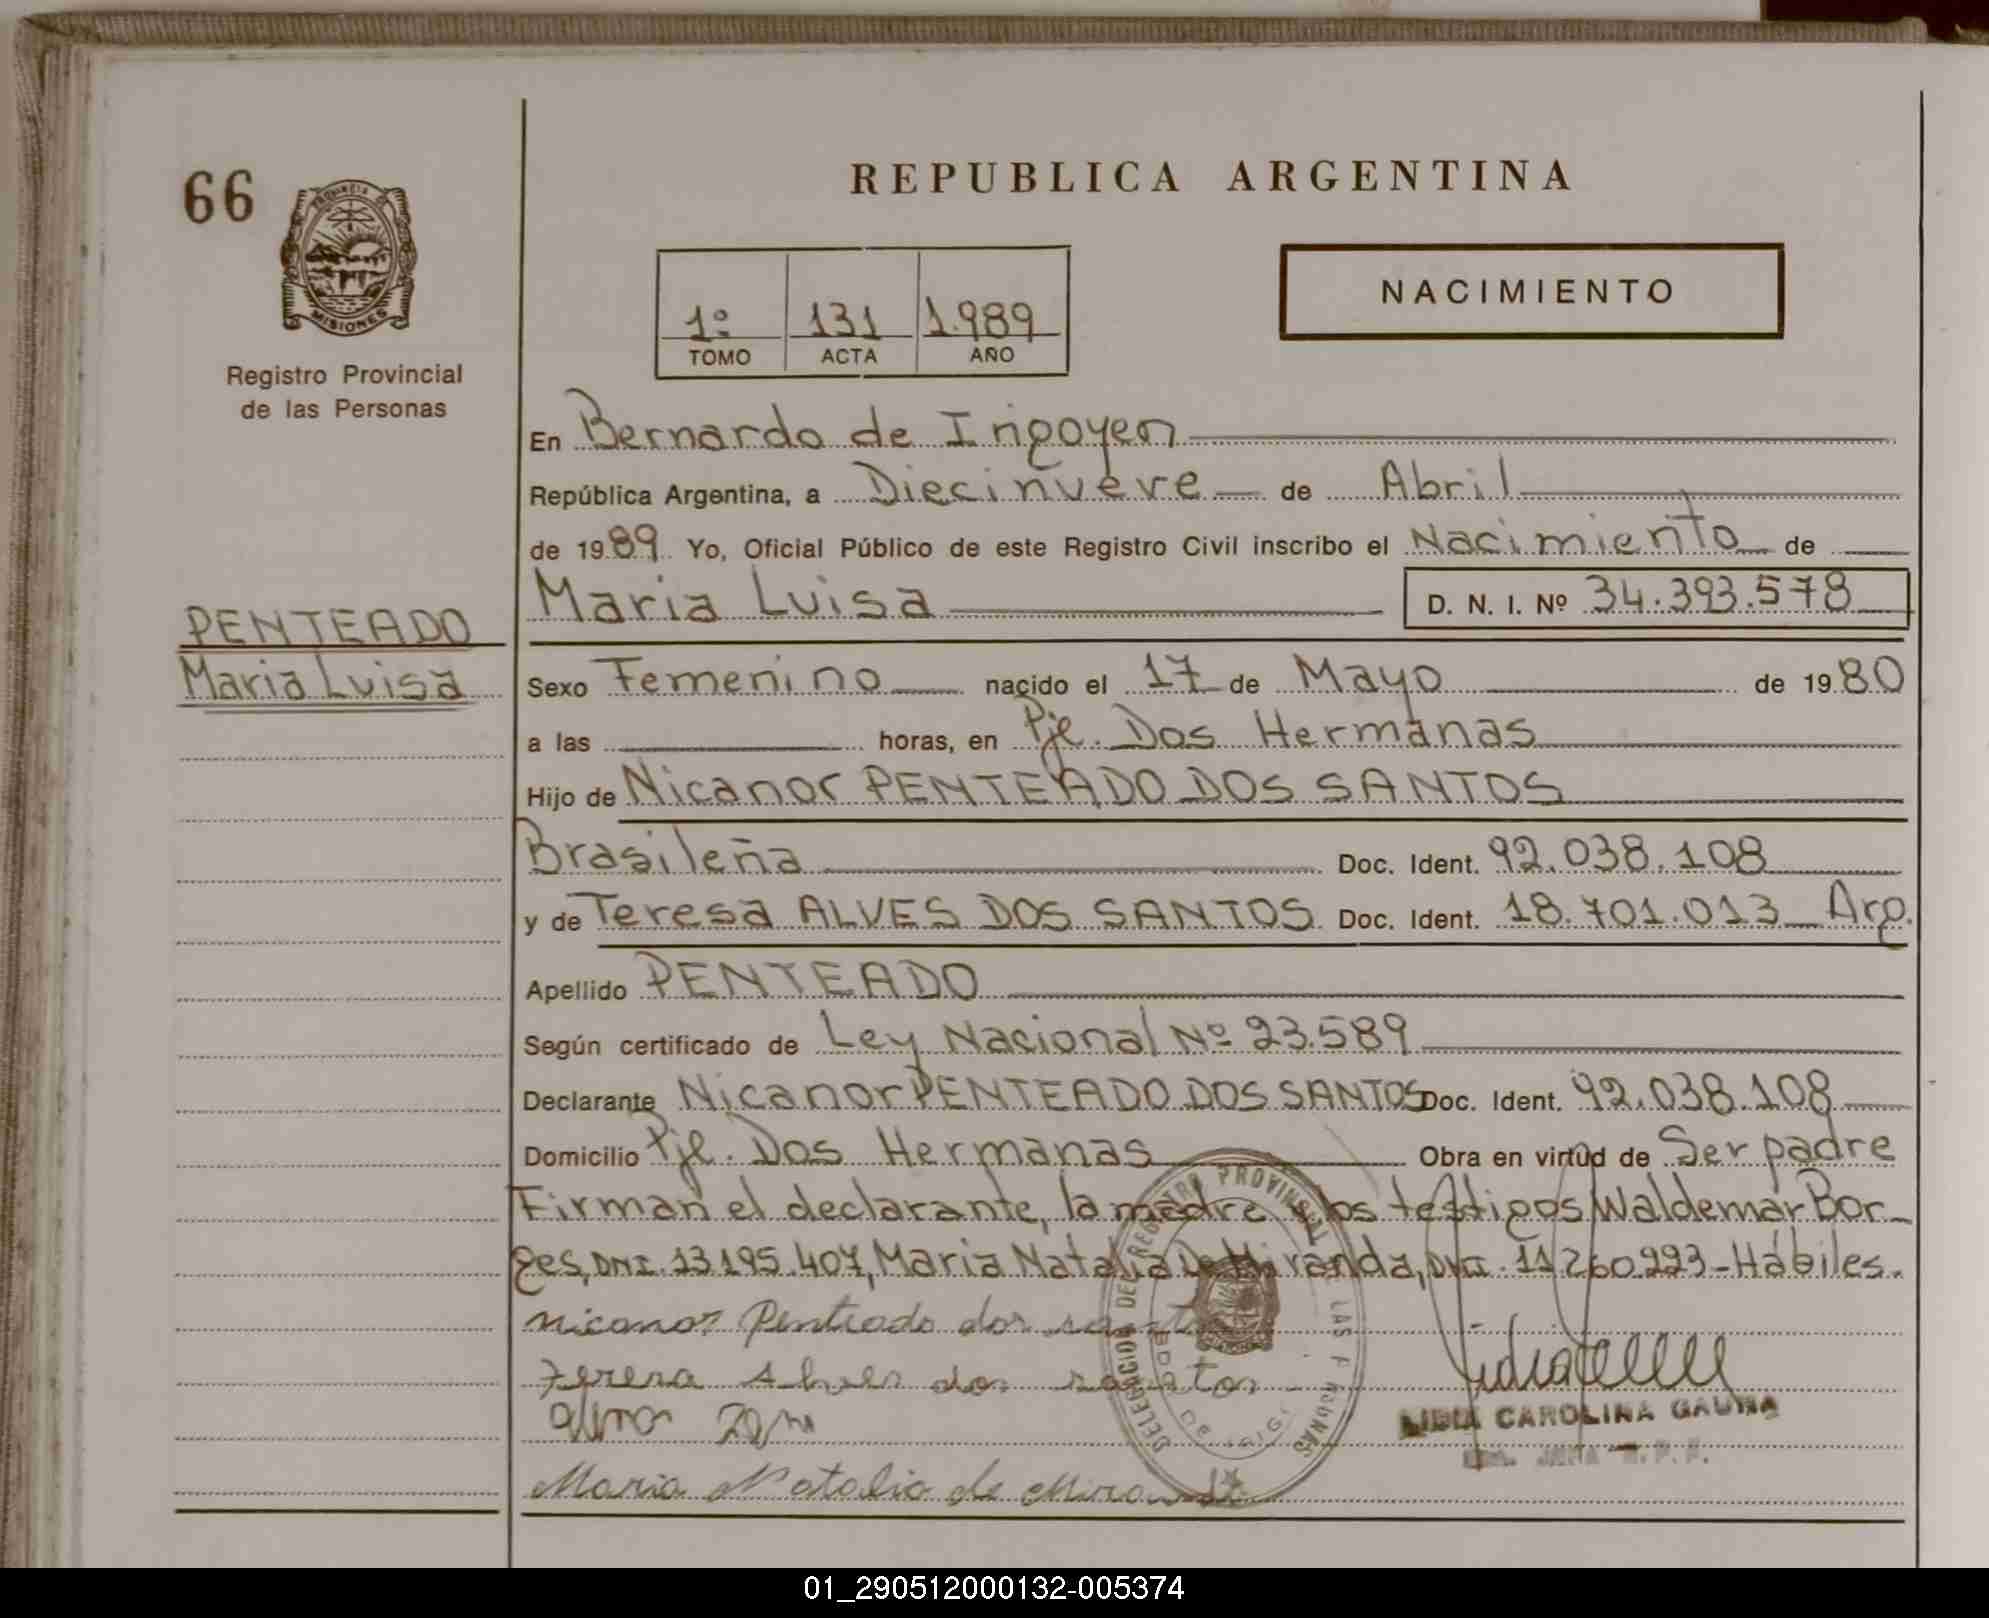 66
REPUBLICA ARGENTINA
PROVINCIA DE
MISIONES
Registro Provincial
de las Personas
1º 131 1.989
TOMO ACTA AÑO
NACIMIENTO
En Bernardo de Irigoyen
República Argentina, a Diecinueve de Abril
de 1989 Yo, Oficial Público de este Registro Civil inscribo el Nacimiento de
Maria Luisa D. N. I. Nº 34.393.578
PENTEADO
Maria Luisa
Sexo Femenino nacido el 17 de Mayo de 1980
a las horas, en Pje. Dos Hermanas
Hijo de Nicanor PENTEADO DOS SANTOS
Brasileña Doc. Ident. 92.038.108
y de Teresa ALVES DOS SANTOS Doc. Ident. 18.701.013 Arg.
Apellido PENTEADO
Según certificado de Ley Nacional Nº 23.589
Declarante Nicanor PENTEADO DOS SANTOS Doc. Ident. 92.038.108
Domicilio Pje. Dos Hermanas Obra en virtud de Ser padre
Firman el declarante, la madre y los testigos Waldemar Bor-
ges, DNI. 13.195.407, Maria Natalia De Miranda, DNI. 11.260.993 - Hábiles.
Nicanor Penteado dos santos
Teresa Alves dos santos
Maria Natalia de Miranda
LIDIA CAROLINA GAUNA
DELEGACION DEL REGISTRO PROVINCIAL DE LAS PERSONAS
01_290512000132-005374